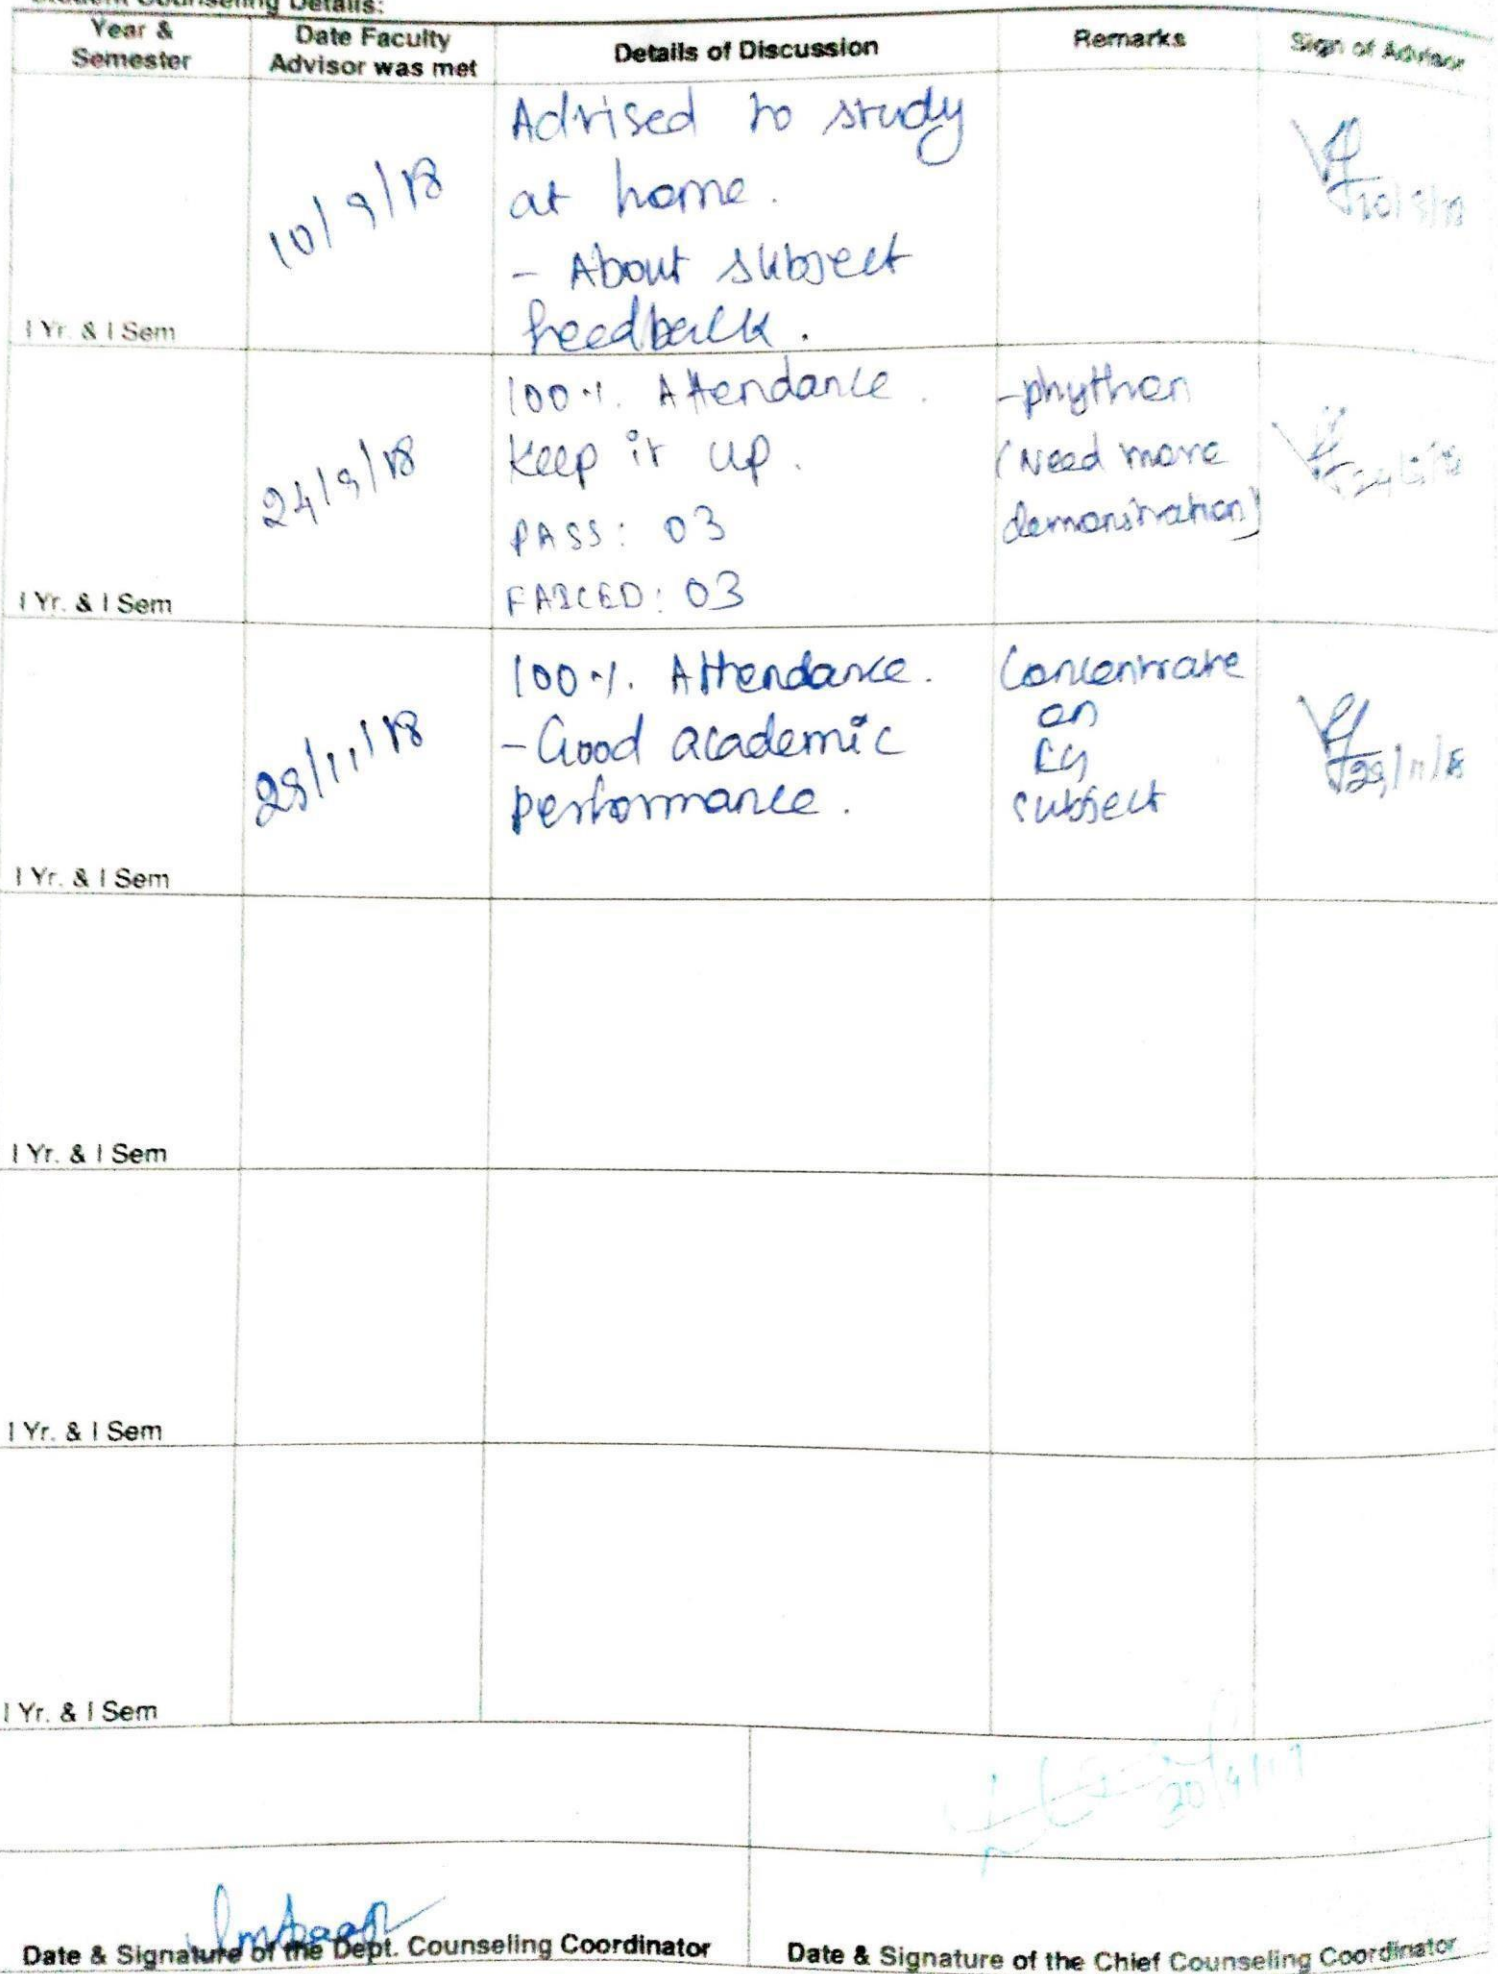 Student Counseling Details:
Year & Semester
Date Faculty Advisor was met
Details of Discussion
Remarks
Sign of Advisor
I Yr. & I Sem
10/9/18
Advised to study
at home.
- About subject
feedback.
10/9/18
I Yr. & I Sem
24/9/18
100 %. Attendance.
Keep it up.
PASS: 03
FAILED: 03
-phython
(Need more
demonstration)
24/9/18
I Yr. & I Sem
29/11/18
100 %. Attendance.
- Good academic
performance.
Concentrate
on
subject
29/11/18
I Yr. & I Sem
I Yr. & I Sem
I Yr. & I Sem
Date & Signature of the Dept. Counseling Coordinator
Date & Signature of the Chief Counseling Coordinator